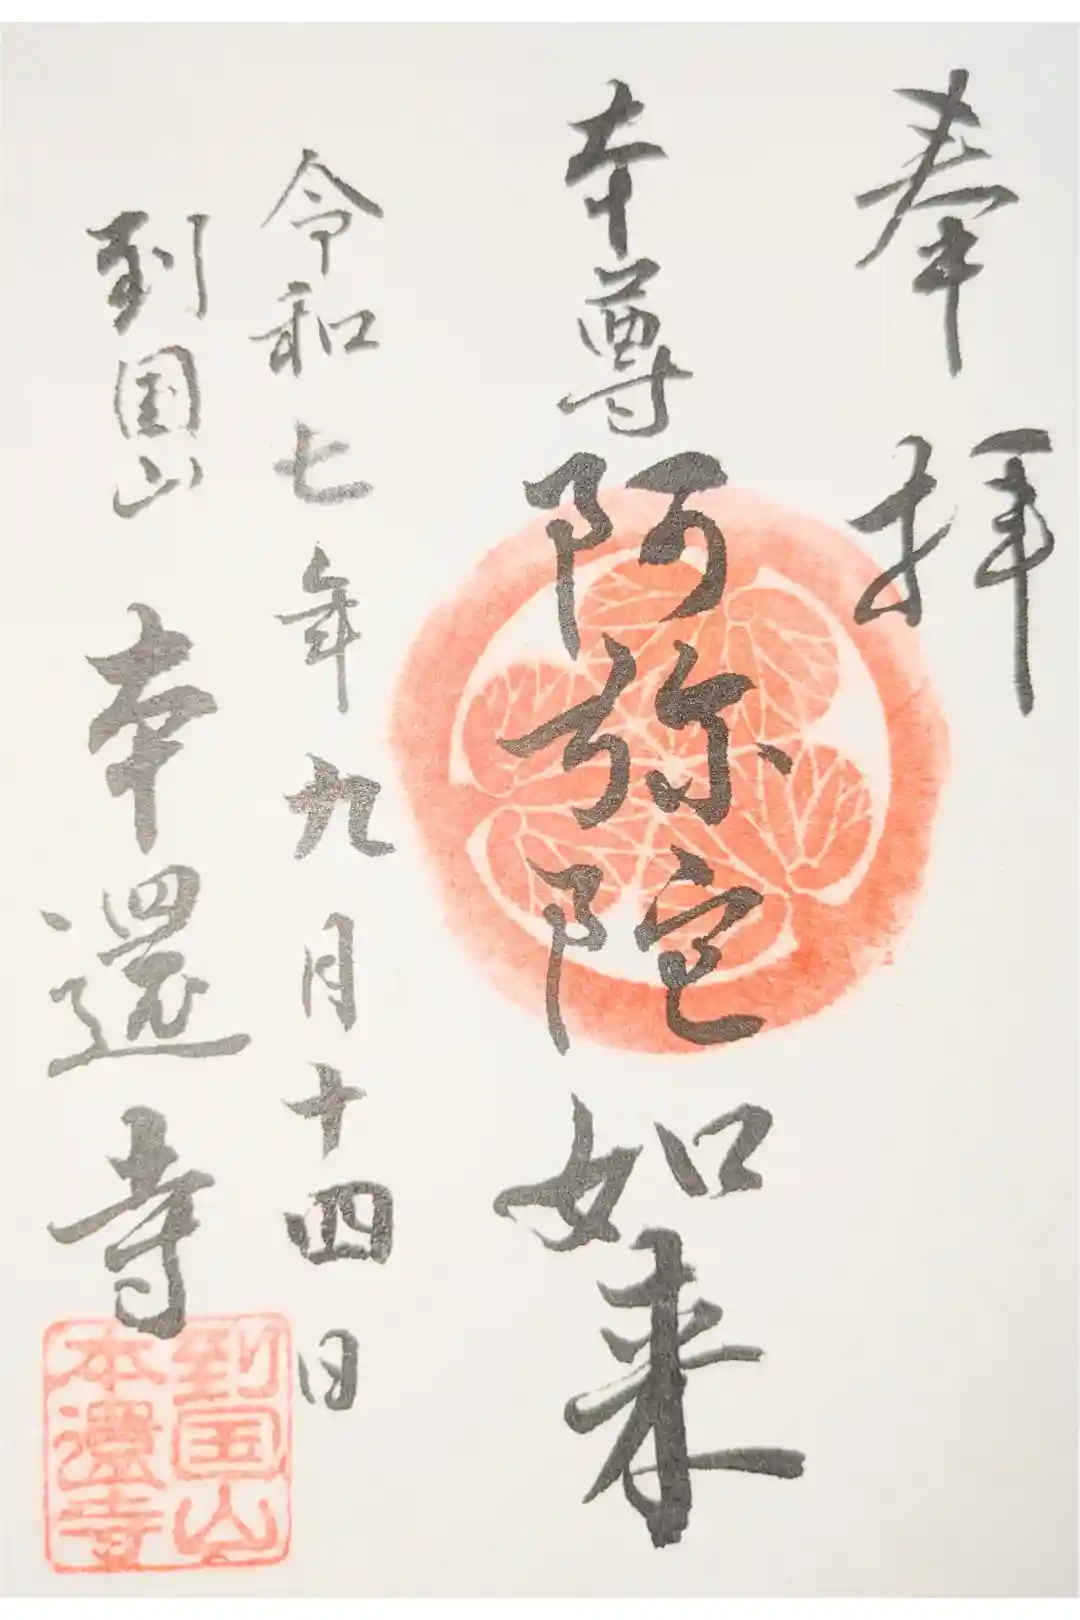 奉拝
本尊阿弥陀如来
令和七年九月十四日
到国山 本還寺
到国山
本還寺